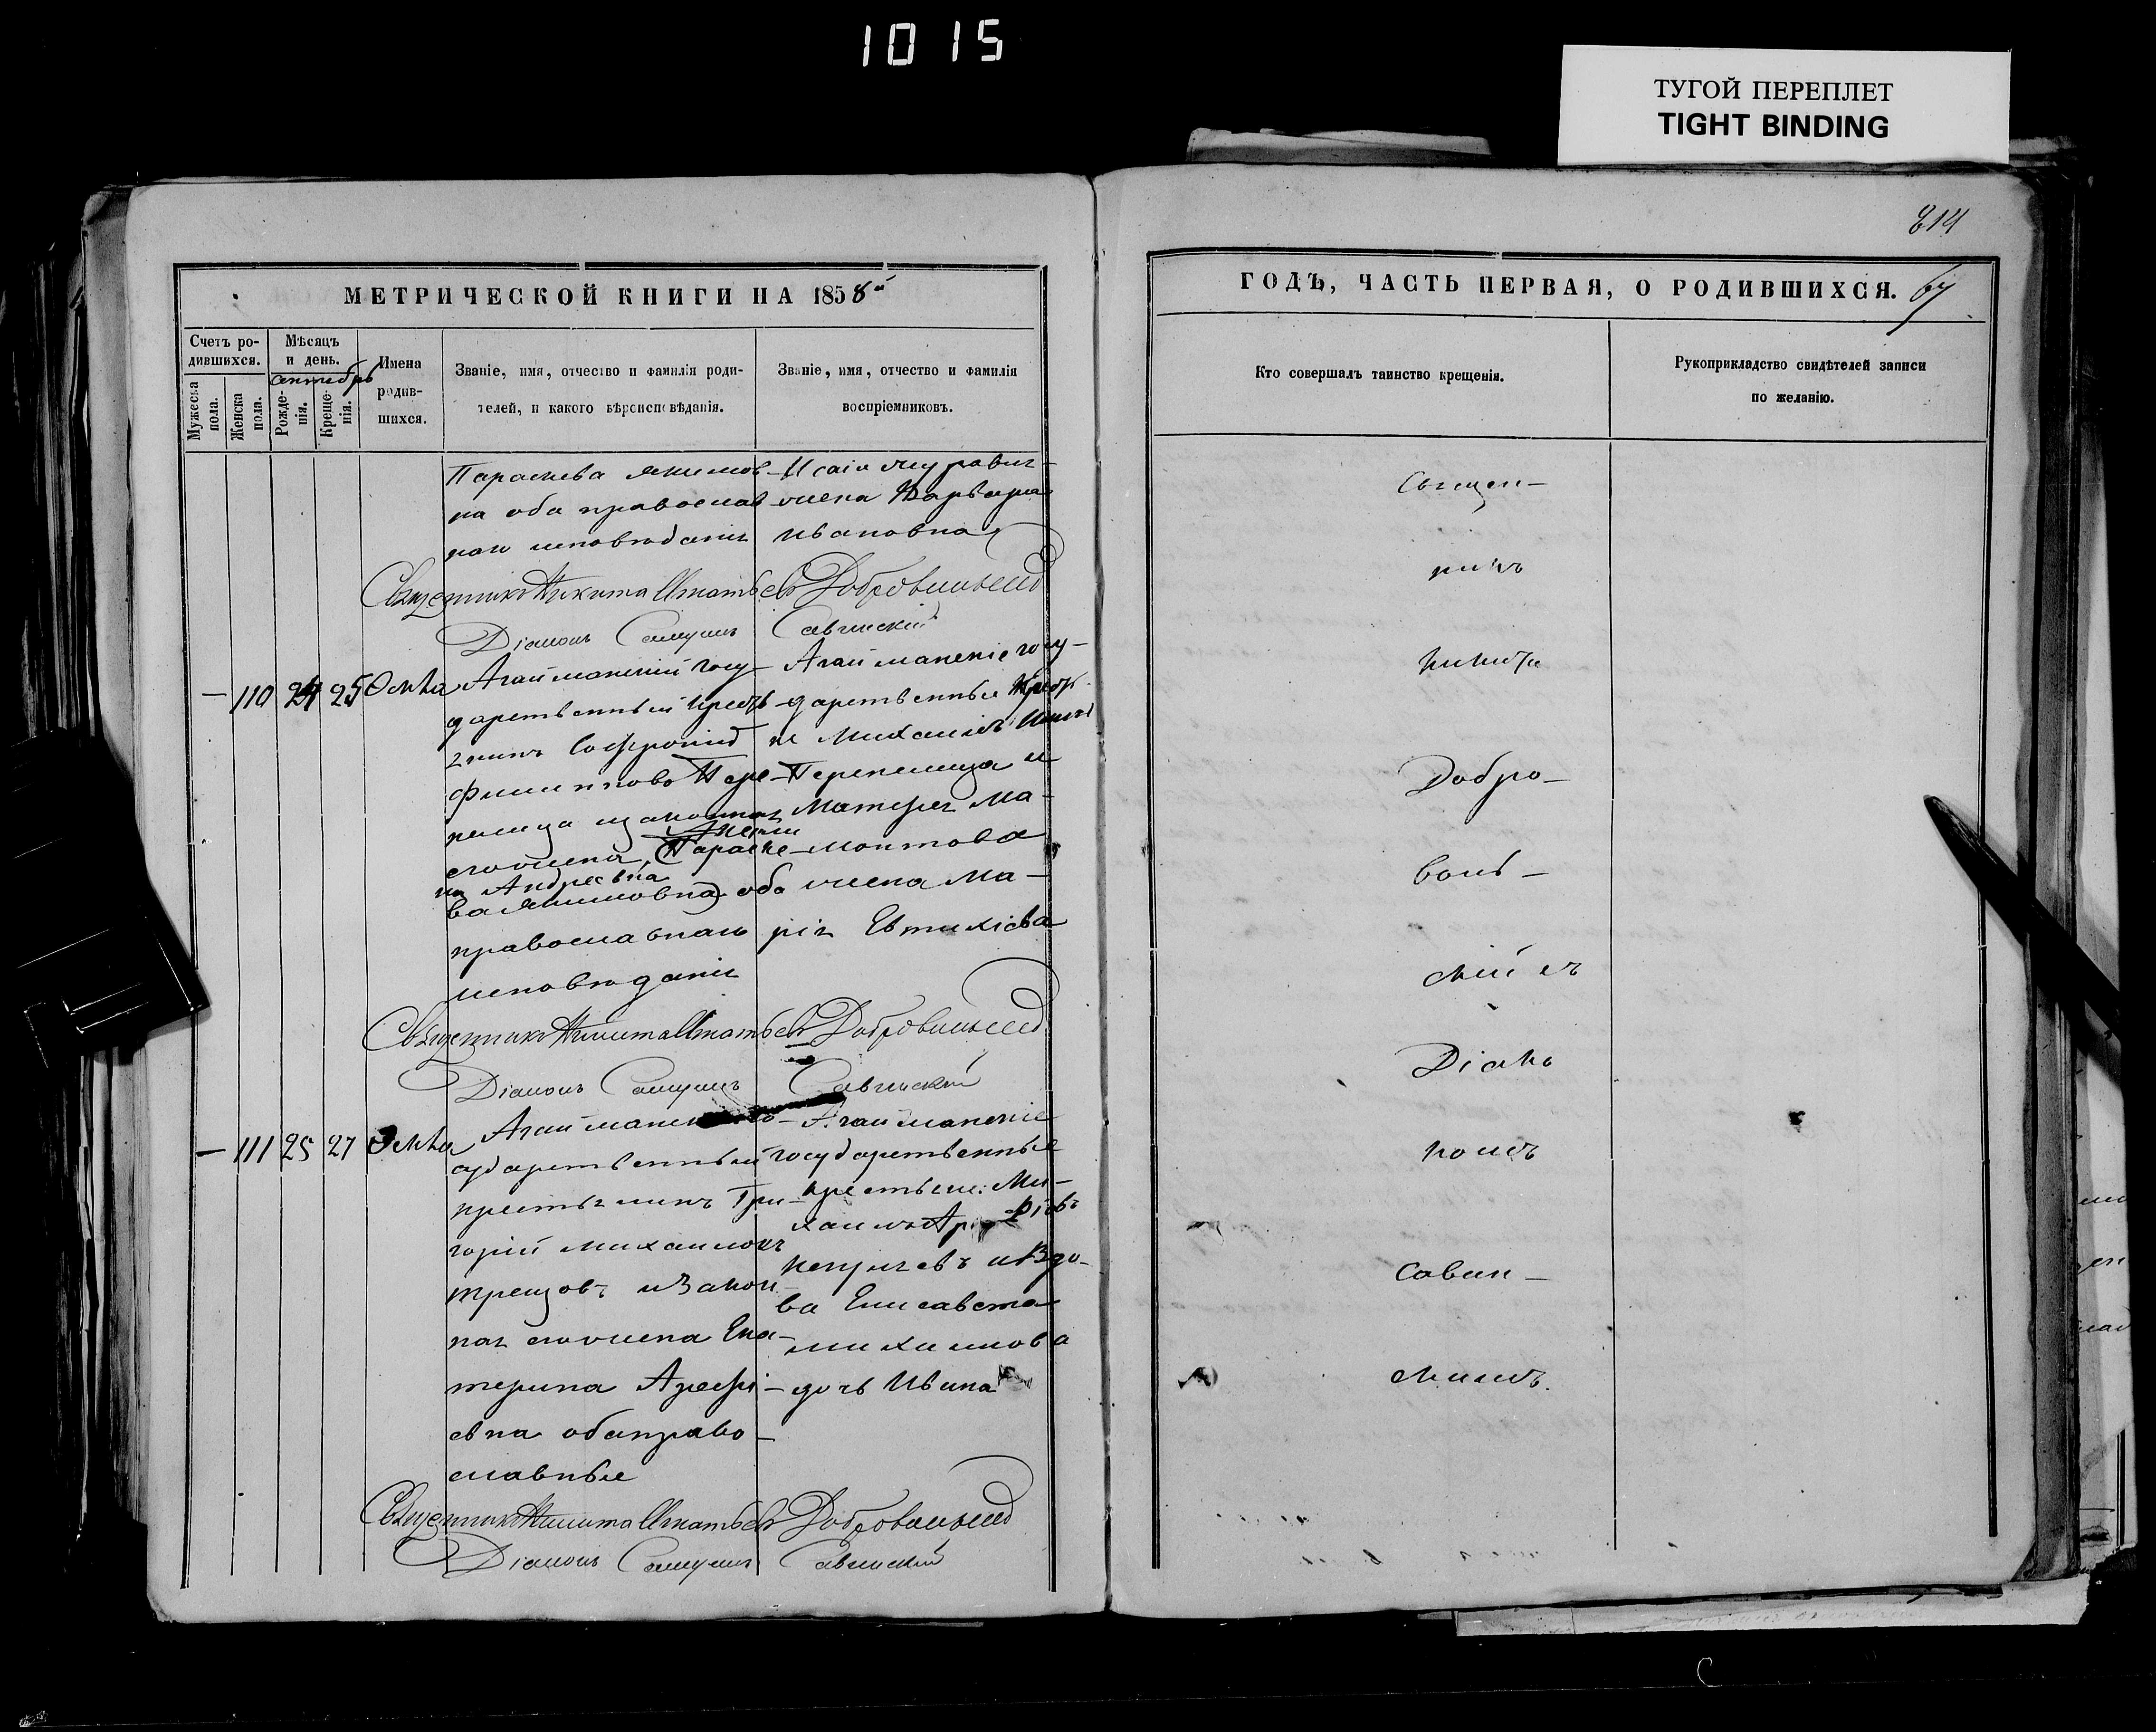 1015
ТУГОЙ ПЕРЕПЛЕТ
TIGHT BINDING
814
МЕТРИЧЕСКОЙ КНИГИ НА 1858й
Счетъ ро-
дившихся.
Мужеска пола.
Женска пола.
Мѣсяцъ
и день.
Рожде-
нія.
Креще-
нія.
Имена
родив-
шихся.
Званіе, имя, отчество и фамилія роди-
телей, и какого вѣроисповѣданія.
Званіе, имя, отчество и фамилія
воспріемниковъ.
Параскева Якимов-
на оба православ-
наго исповѣданія
жена Варвара
Ивановна
Священникъ Никита Игнатьевъ Добровольскій
Діаконъ Самуилъ Савинскій
— 110 24 25 Ѳекла
Агайманскій госу-
дарственный крестья-
нинъ Софроній
Филипповъ Пере-
пелица и законная
его жена, (Параске-
на Андреевна
ва Якимовна) оба
православнаго
исповѣданія
Агайманскіе госу-
дарственные крестья-
не Михаилъ
Перепелица и
жена Ма-
рія Евтихіева
Священникъ Никита Игнатьевъ Добровольскій
Діаконъ Самуилъ Савинскій
— 111 25 27 Ѳекла
сударственный
крестьянинъ Гри-
горій Михайловъ
и закон-
ная его жена Ека-
терина Ареѳі-
евна оба право-
славные
Агайманскіе
государственные
крестьяне: Ми-
хаилъ
и вдо-
ва Елисавета
Михайлова
дочь
Священникъ Никита Игнатьевъ Добровольскій
Діаконъ Самуилъ Савинскій
ГОДЪ, ЧАСТЬ ПЕРВАЯ, О РОДИВШИХСЯ. 67
Кто совершалъ таинство крещенія.
Рукоприкладство свидѣтелей записи
по желанію.
Священ-
никъ
Никита
Добро-
воль-
скій съ
Діако-
номъ
Савин-
скимъ.